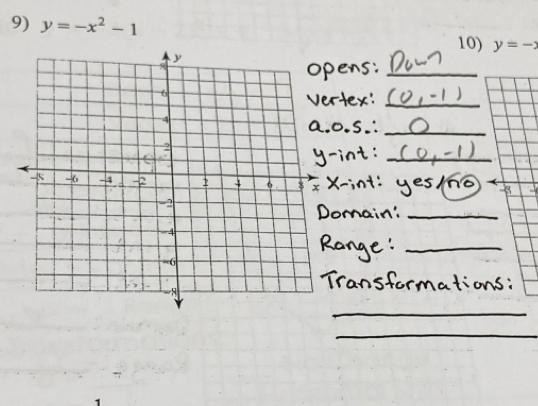 9) y = −x² − 1
10) y = −
y
8
6
4
2
−8 −6 −4 −2 2 4 6 8 x
−2
−4
−6
−8
opens: Down
vertex: (0, -1)
a.o.s.: 0
y-int: (0, -1)
X-int: yes/no
-8
Domain:
Range:
Transformations: